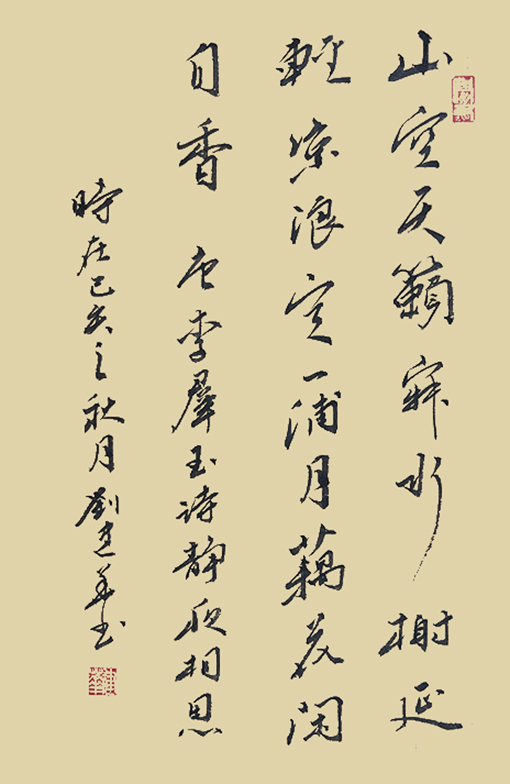 山空天籟寂水榭延
輕涼浪定一浦月藕花閑
自香 唐李羣玉诗静夜相思
時在己亥之秋月劉建华书